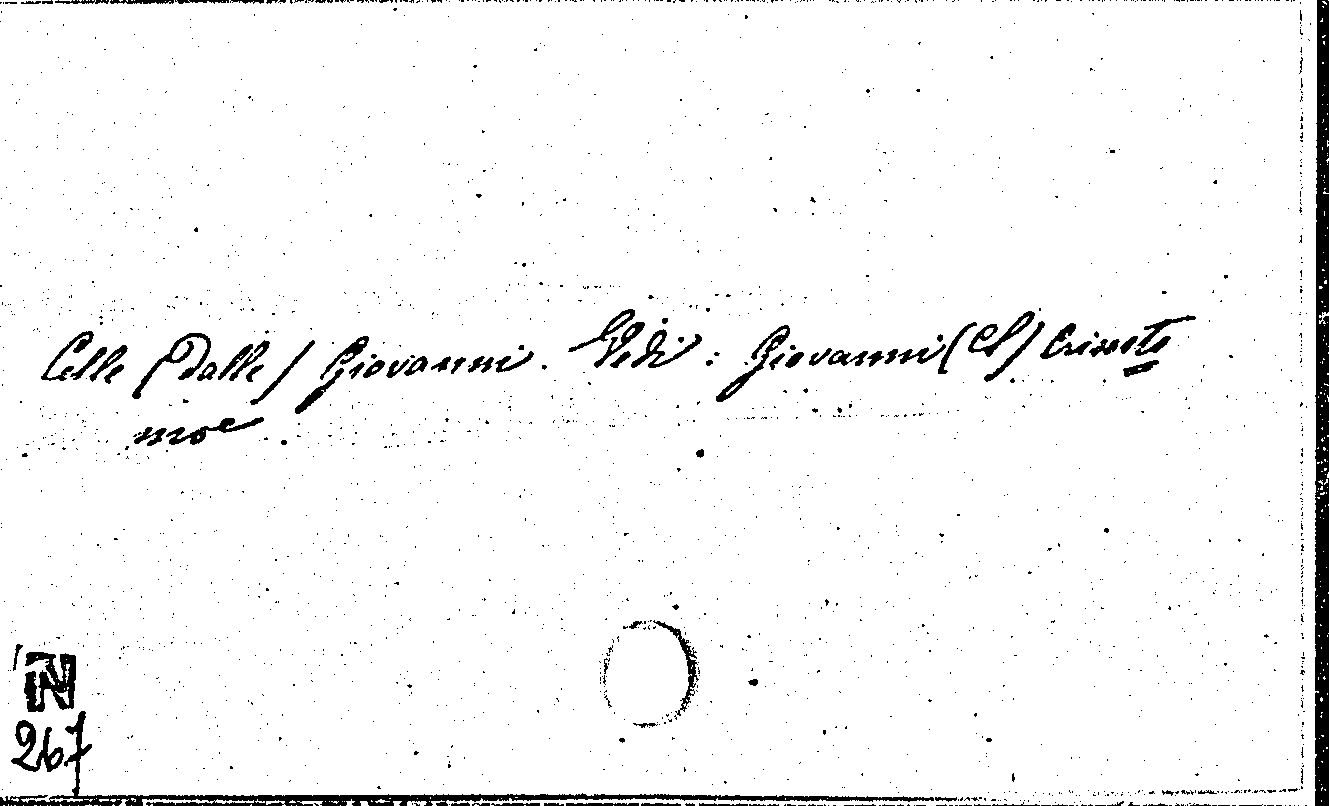 Celle (Dalle) Giovanni. Vedi: Giovanni (S) Crisosto=
mo
N
267